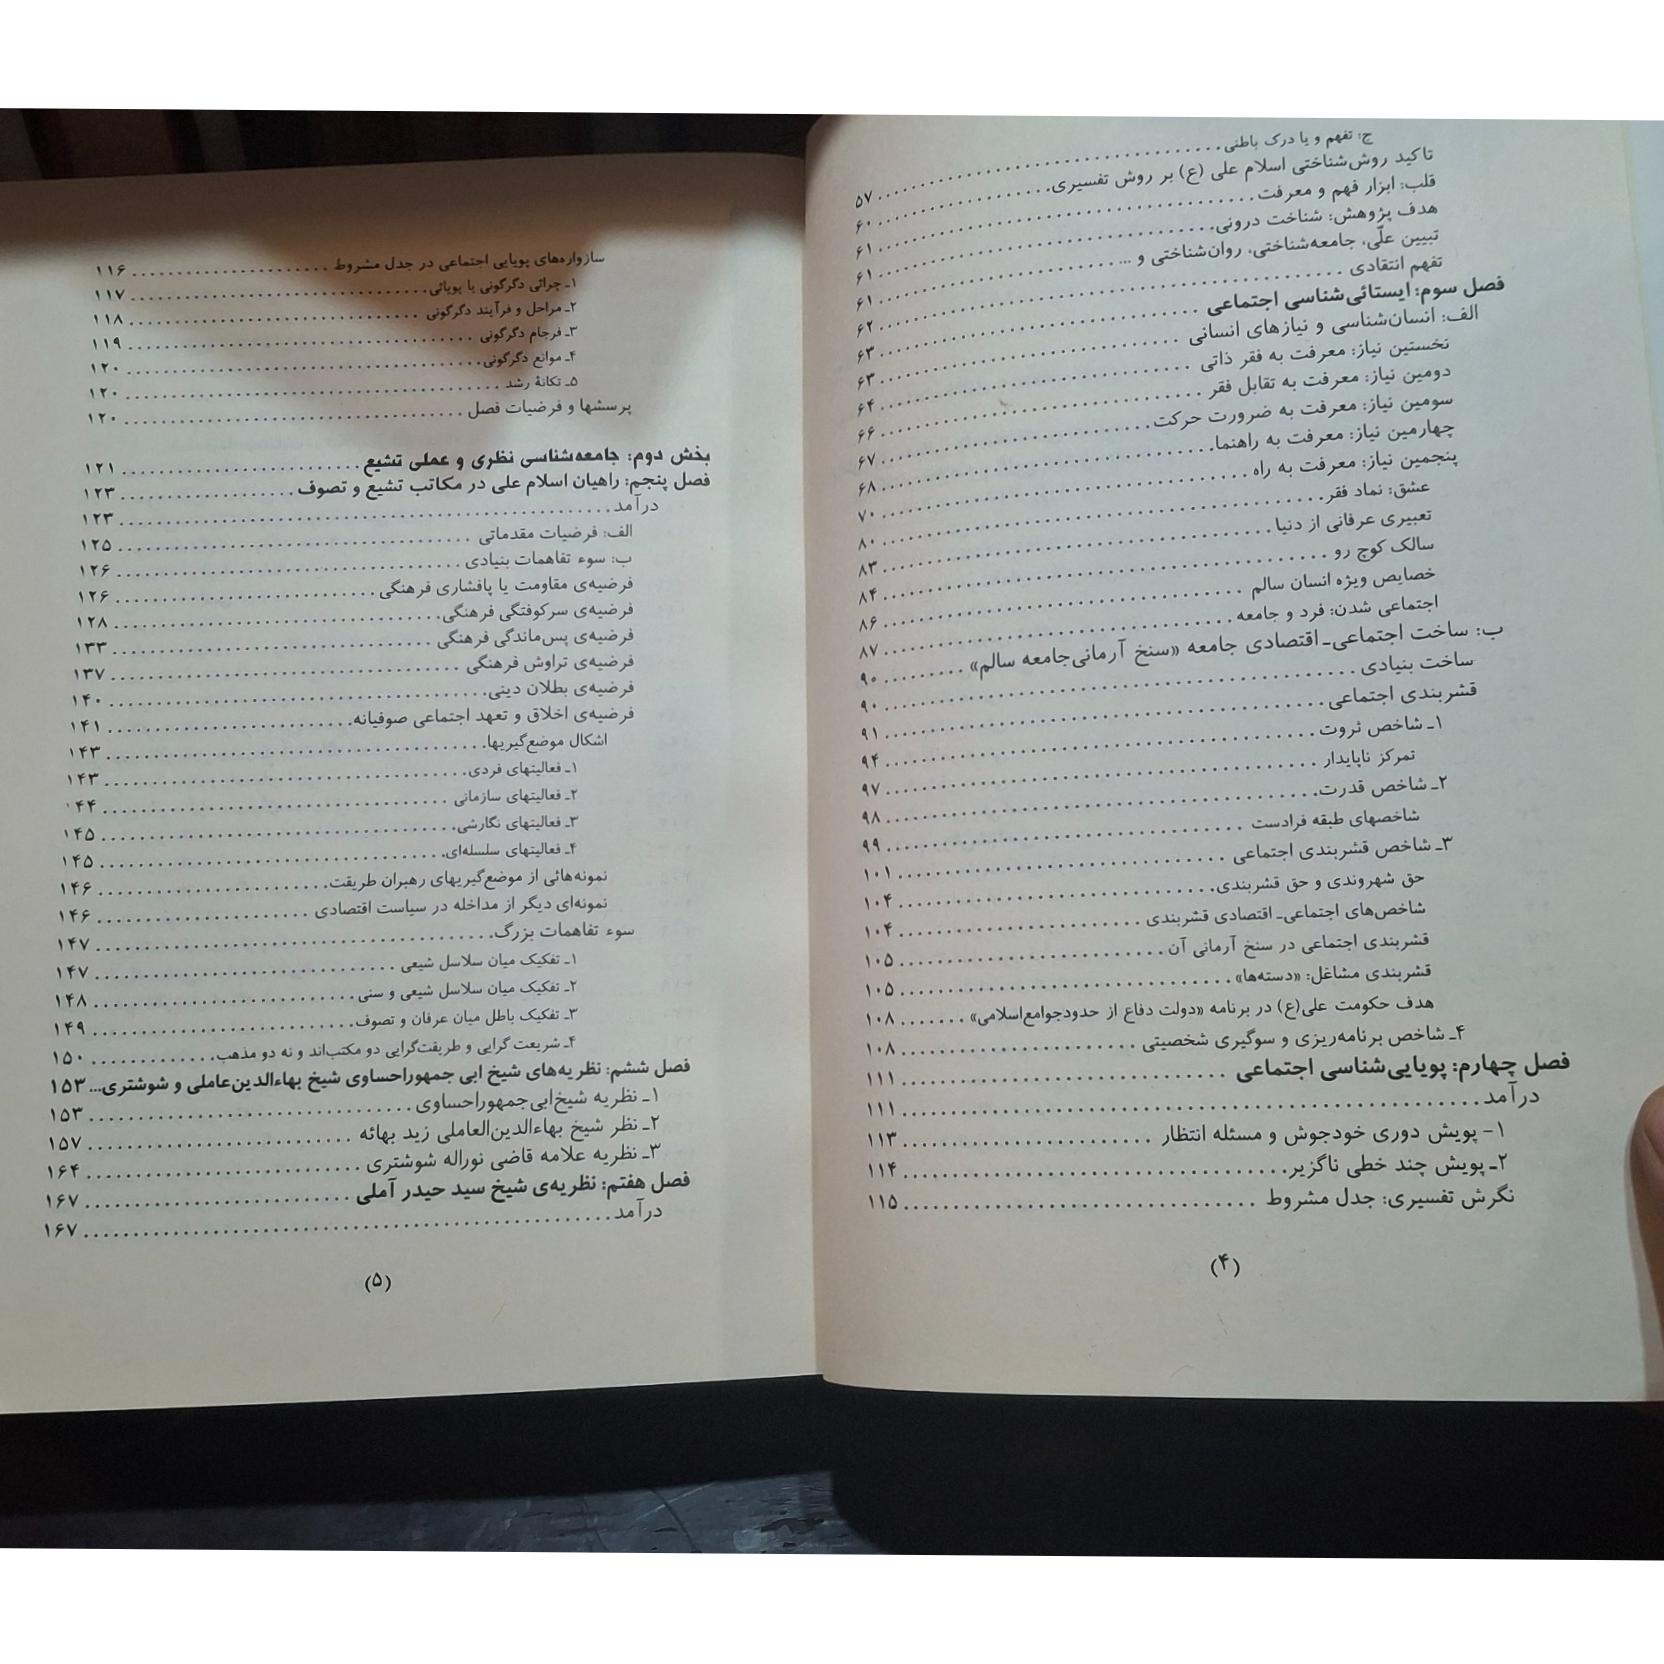 ج: تفهم و یا درک باطنی ۵۷
تاکید روش‌شناختی اسلام علی (ع) بر روش تفسیری ۶۰
قلب: ابزار فهم و معرفت ۶۱
هدف پژوهش: شناخت درونی ۶۱
تبیین علّی، جامعه‌شناختی، روان‌شناختی و ... ۶۱
تفهم انتقادی ۶۲
فصل سوم: ایستائی‌شناسی اجتماعی ۶۳
الف: انسان‌شناسی و نیازهای انسانی ۶۳
نخستین نیاز: معرفت به فقر ذاتی ۶۴
دومین نیاز: معرفت به تقابل فقر ۶۶
سومین نیاز: معرفت به ضرورت حرکت ۶۷
چهارمین نیاز: معرفت به راهنما ۶۸
پنجمین نیاز: معرفت به راه ۷۰
عشق: نماد فقر ۸۰
تعبیری عرفانی از دنیا ۸۳
سالک کوچ رو ۸۴
خصایص ویژه انسان سالم ۸۶
اجتماعی شدن: فرد و جامعه ۸۷
ب: ساخت اجتماعی‌ـ اقتصادی جامعه «سنخ آرمانی‌جامعه سالم» ۹۰
ساخت بنیادی ۹۰
قشربندی اجتماعی ۹۱
۱ـ شاخص ثروت ۹۴
تمرکز ناپایدار ۹۷
۲ـ شاخص قدرت ۹۸
شاخصهای طبقه فرادست ۹۹
۳ـ شاخص قشربندی اجتماعی ۱۰۱
حق شهروندی و حق قشربندی ۱۰۴
شاخص‌های اجتماعی‌ـ اقتصادی قشربندی ۱۰۴
قشربندی اجتماعی در سنخ آرمانی آن ۱۰۵
قشربندی مشاغل: «دسته‌ها» ۱۰۵
هدف حکومت علی(ع) در برنامه «دولت دفاع از حدودجوامع‌اسلامی» ۱۰۸
۴ـ شاخص برنامه‌ریزی و سوگیری شخصیتی ۱۰۸
فصل چهارم: پویایی‌شناسی اجتماعی ۱۱۱
درآمد ۱۱۱
۱- پویش دوری خودجوش و مسئله انتظار ۱۱۳
۲ـ پویش چند خطی ناگزیر ۱۱۴
نگرش تفسیری: جدل مشروط ۱۱۵
(۴)
سازواره‌های پویایی اجتماعی در جدل مشروط ۱۱۶
۱ـ چرائی دگرگونی یا پویائی ۱۱۷
۲ـ مراحل و فرآیند دگرگونی ۱۱۸
۳ـ فرجام دگرگونی ۱۱۹
۴ـ موانع دگرگونی ۱۲۰
۵ـ تکانهٔ رشد ۱۲۰
پرسشها و فرضیات فصل ۱۲۰
بخش دوم: جامعه‌شناسی نظری و عملی تشیع ۱۲۱
فصل پنجم: راهیان اسلام علی در مکاتب تشیع و تصوف ۱۲۳
درآمد ۱۲۳
الف: فرضیات مقدماتی ۱۲۵
ب: سوء تفاهمات بنیادی ۱۲۶
فرضیه‌ی مقاومت یا پافشاری فرهنگی ۱۲۶
فرضیه‌ی سرکوفتگی فرهنگی ۱۲۸
فرضیه‌ی پس‌ماندگی فرهنگی ۱۳۳
فرضیه‌ی تراوش فرهنگی ۱۳۷
فرضیه‌ی بطلان دینی ۱۴۰
فرضیه‌ی اخلاق و تعهد اجتماعی صوفیانه ۱۴۱
اشکال موضع‌گیریها ۱۴۳
۱ـ فعالیتهای فردی ۱۴۳
۲ـ فعالیتهای سازمانی ۱۴۴
۳ـ فعالیتهای نگارشی ۱۴۵
۴ـ فعالیتهای سلسله‌ای ۱۴۵
نمونه‌هائی از موضع‌گیریهای رهبران طریقت ۱۴۶
نمونه‌ای دیگر از مداخله در سیاست اقتصادی ۱۴۶
سوء تفاهمات بزرگ ۱۴۷
۱ـ تفکیک میان سلاسل شیعی ۱۴۷
۲ـ تفکیک میان سلاسل شیعی و سنی ۱۴۸
۳ـ تفکیک باطل میان عرفان و تصوف ۱۴۹
۴ـ شریعت گرایی و طریقت‌گرایی دو مکتب‌اند و نه دو مذهب ۱۵۰
فصل ششم: نظریه‌های شیخ ابی جمهوراحساوی شیخ بهاءالدین‌عاملی و شوشتری... ۱۵۳
۱ـ نظریه شیخ‌ابی‌جمهوراحساوی ۱۵۳
۲ـ نظر شیخ بهاءالدین‌العاملی زید بهائه ۱۵۷
۳ـ نظریه علامه قاضی نوراله شوشتری ۱۶۴
فصل هفتم: نظریه‌ی شیخ سید حیدر آملی ۱۶۷
درآمد ۱۶۷
(۵)